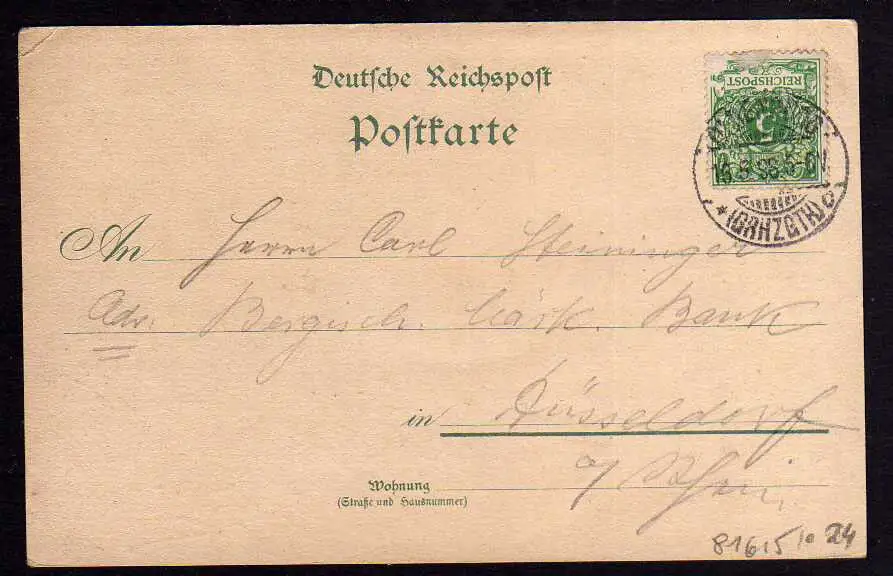 Deutsche Reichspost
Postkarte
REICHSPOST
5
(GRHZGTH)
An Herrn Carl Steininger
Adr. Bergisch. Märk. Bank
in Düsseldorf
a/ Rhein.
Wohnung
(Straße und Hausnummer)